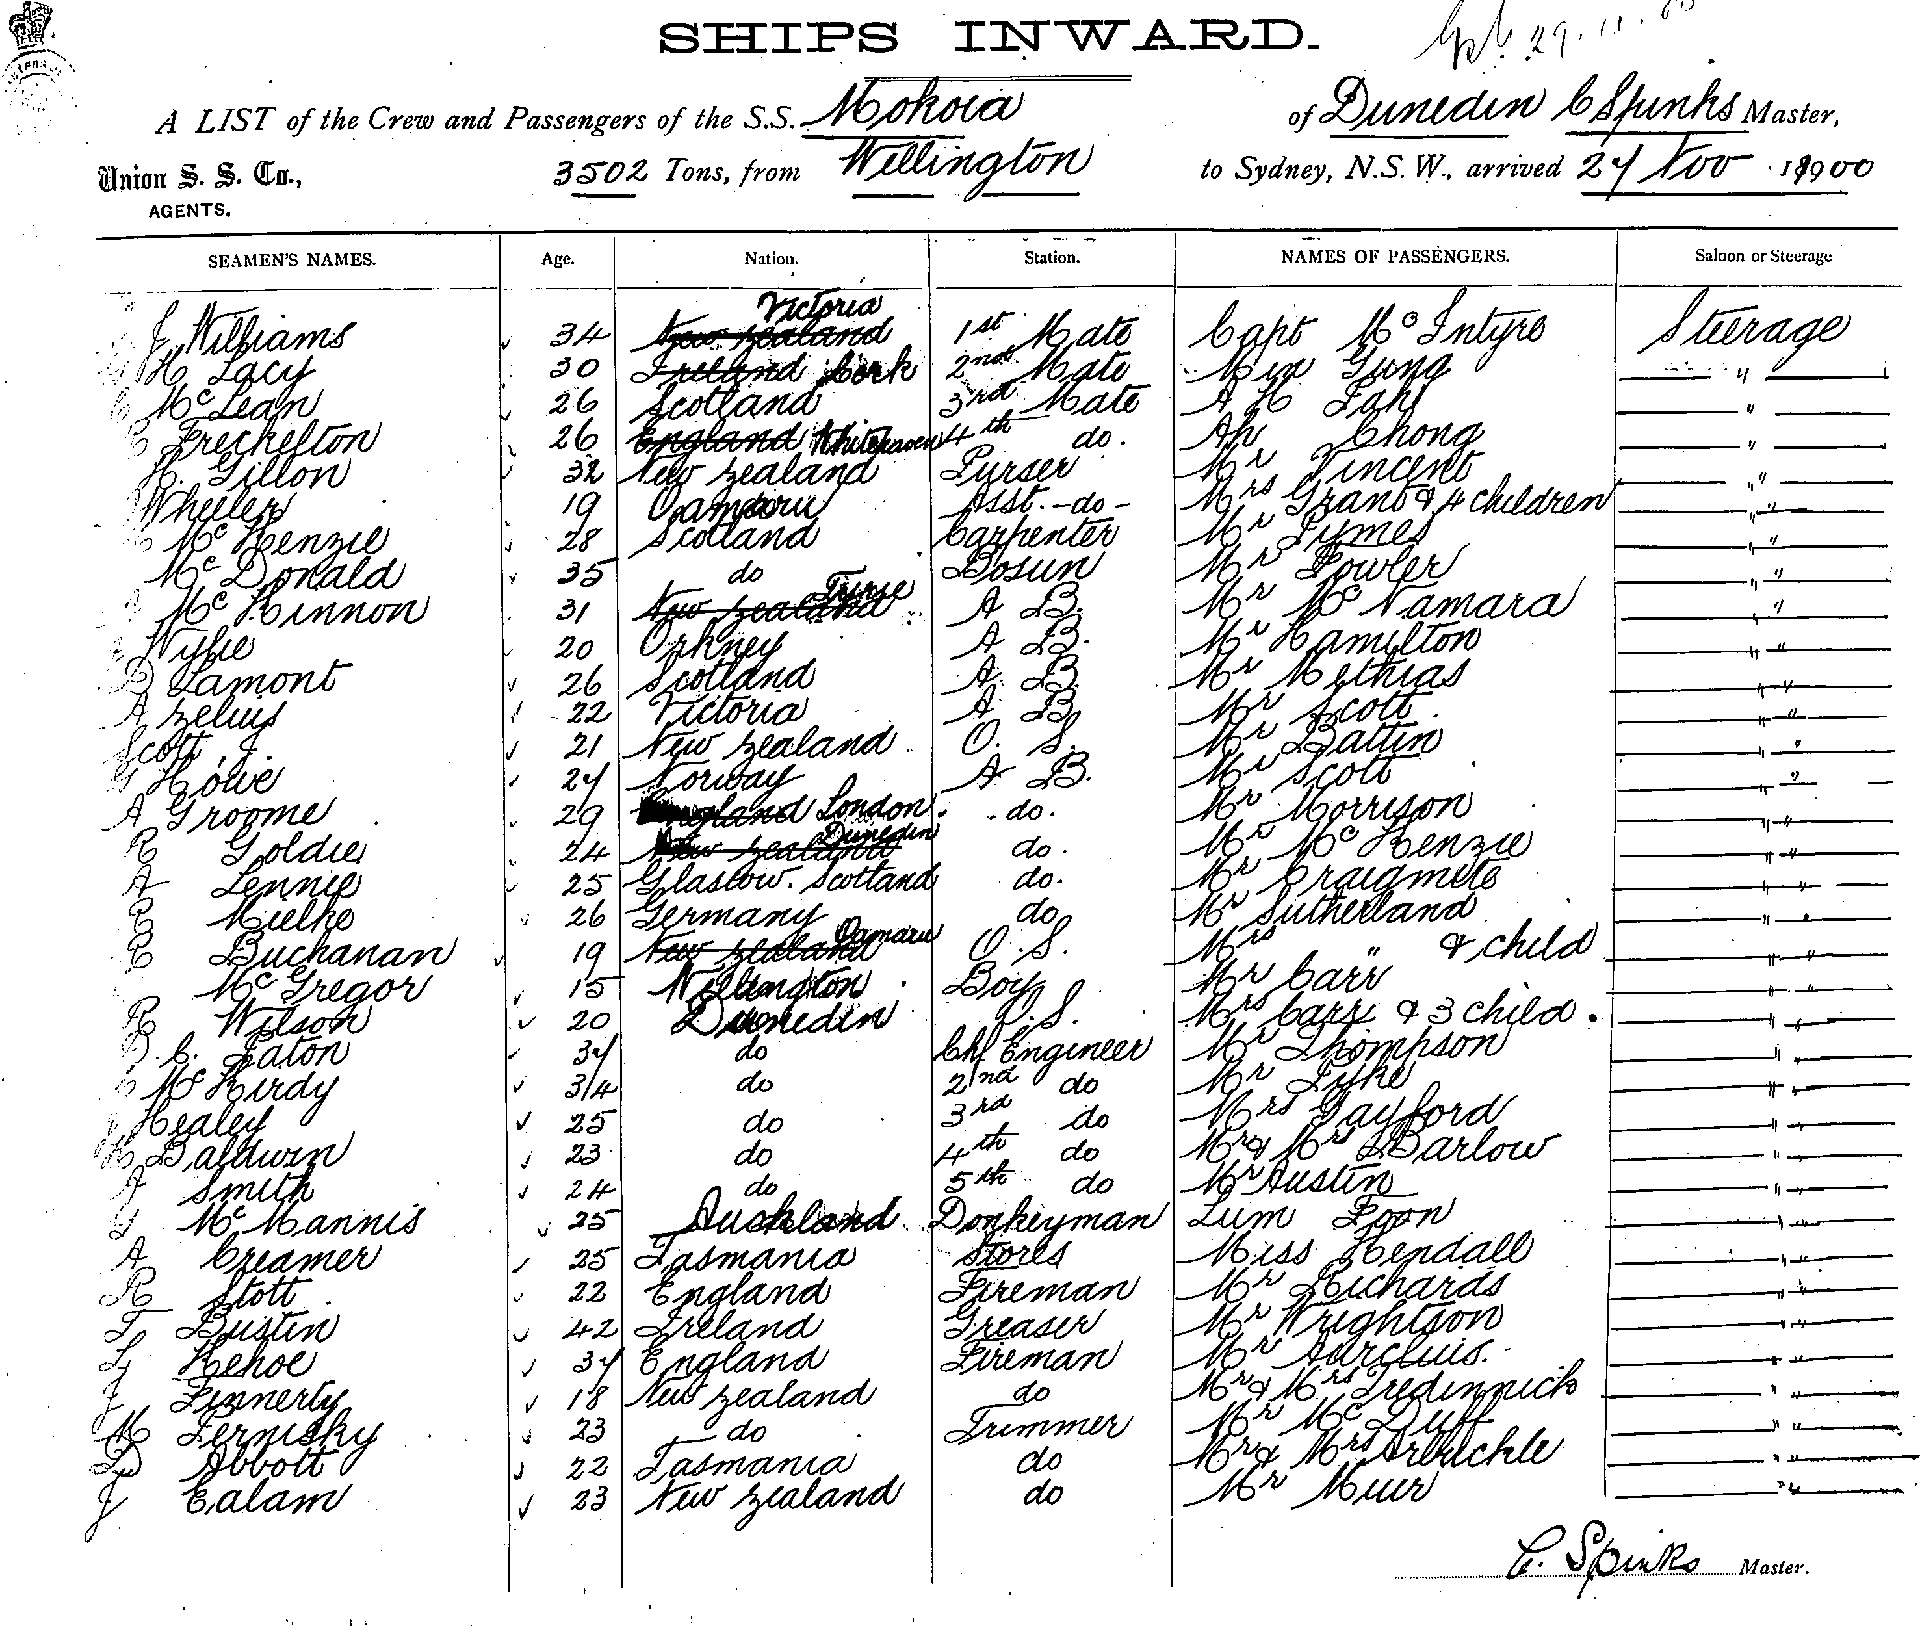 SHIPS INWARD.
A LIST of the Crew and Passengers of the S.S. Mokoia of Dunedin C Spinks Master,
Union S. S. Co., 3502 Tons, from Wellington to Sydney, N.S.W., arrived 27 Nov 1900
AGENTS.
SEAMEN'S NAMES. Age. Nation. Station. NAMES OF PASSENGERS. Saloon or Steerage
Victoria
J Williams 34 New Zealand 1st Mate Capt McIntyre Steerage
H Lacy 30 Ireland Cork 2nd Mate Gung "
McLean 26 Scotland 3rd Mate A H "
Freckelton 26 England Whitehaven 4th do. Ah Chong "
H. Gillon 32 New Zealand Purser Mr Vincent " "
Wheeler 19 Oamaru Asst. -do- Mrs Grant & 4 children " "
McKenzie 28 Scotland Carpenter Mr Symes " "
McDonald 35 do Bosun Mr Fowler " "
McKinnon 31 New Zealand A B. Mr McNamara " "
Wylie 20 Orkney A B. Mr Hamilton " "
D Lamont 26 Scotland A B. Mr Methias " "
A Zelius 22 Victoria A B. Mr Scott " "
Scott J. 21 New Zealand O. S. Mr Battin " "
Howe 27 Norway A B. Mr Scott " "
A Groome 29 England London. do. Mr Morrison " "
Dunedin
R Goldie 24 New Zealand do. Mr McKenzie " "
A Lennie 25 Glasgow. Scotland do. Mr Craigmete " "
R Mielke 26 Germany do Mr Sutherland " "
Oamaru
R Buchanan 19 New Zealand O. S. Mrs " & child " "
McGregor 15 Wellington Boy Mr Carr " "
R Wilson 20 Dunedin O. S. Mrs Carr & 3 child. " "
D. C. Eaton 37 do Chf Engineer Mr Thompson " "
McKirdy 34 do 2nd do Mr Pyke " "
Healey 25 do 3rd do Mrs Gayford " "
H Baldwin 23 do 4th do Mr & Mrs Barlow " "
J Smith 24 do 5th do Mr Austin " "
McMannis 25 Auckland Donkeyman Lum Poon " "
A Creamer 25 Tasmania Stores Miss Kendall " "
R Stott 22 England Fireman Mr Richards " "
T Bustin 42 Ireland Greaser Mr Wrightson " "
Kehoe 37 England Fireman Mr " "
J Finnerty 18 New Zealand do Mr & Mrs Tredinnick " "
M Fernisky 23 do Trimmer Mr McDuff " "
D Abbott 22 Tasmania do Mr & Mrs Arbuckle " "
J Ealam 23 New Zealand do Mr Muir " "
C. Spinks Master.